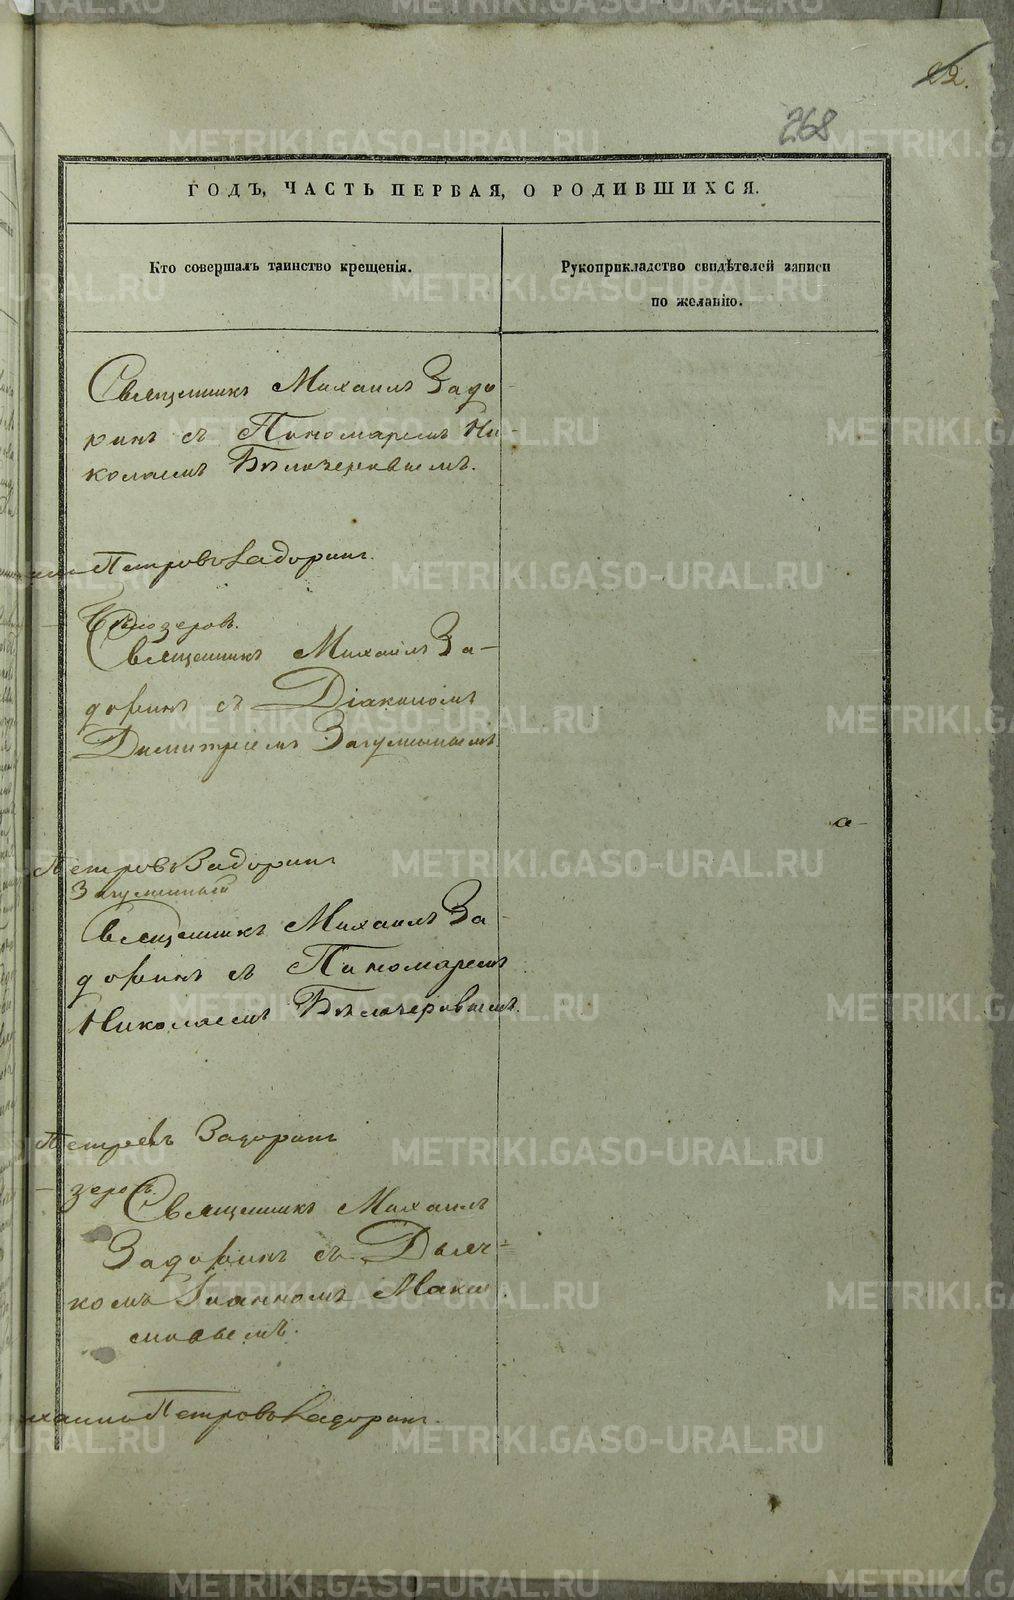 22.
268
ГОДЪ, ЧАСТЬ ПЕРВАЯ, О РОДИВШИХСЯ.
Кто совершалъ таинство крещенія.
Рукоприкладство свидѣтелей записи
по желанію.
Священникъ Михаилъ Задо
ринъ съ Пономаремъ Ни-
колаемъ Бѣлозеровымъ.
Петровъ Задоринъ.
Бѣлозеровъ.
Священникъ Михаилъ За-
доринъ съ Діакономъ
Димитріемъ Загуменнымъ.
Петровъ Задоринъ
Загуменный
Священникъ Михаилъ За-
доринъ съ Пономаремъ
Николаемъ Бѣлозеровымъ.
Петровъ Задоринъ
зеровъ.
Священникъ Михаилъ
Задоринъ съ Дьяч-
комъ Іоанномъ Макси
мовымъ.
Петровъ Задоринъ.
METRIKI.GASO-URAL.RU